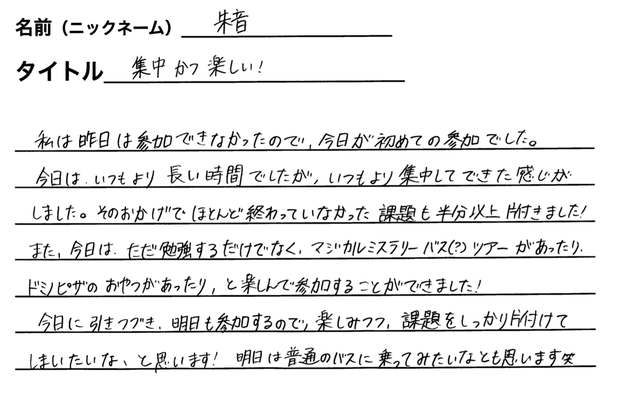 名前（ニックネーム） 朱音
タイトル 集中かつ楽しい!
私は昨日は参加できなかったので、今日が初めての参加でした。
今日は、いつもより長い時間でしたが、いつもより集中してできた感じが
しました。そのおかげでほとんど終わっていなかった課題も半分以上片付きました!
また、今日は、ただ勉強するだけでなく、マジカルミステリーバス(?)ツアーがあったり、
ドミノピザのおやつがあったり、と楽しんで参加することができました!
今日に引きつづき、明日も参加するので、楽しみつつ、課題をしっかり片付けて
しまいたいな、と思います! 明日は普通のバスに乗ってみたいなとも思います笑